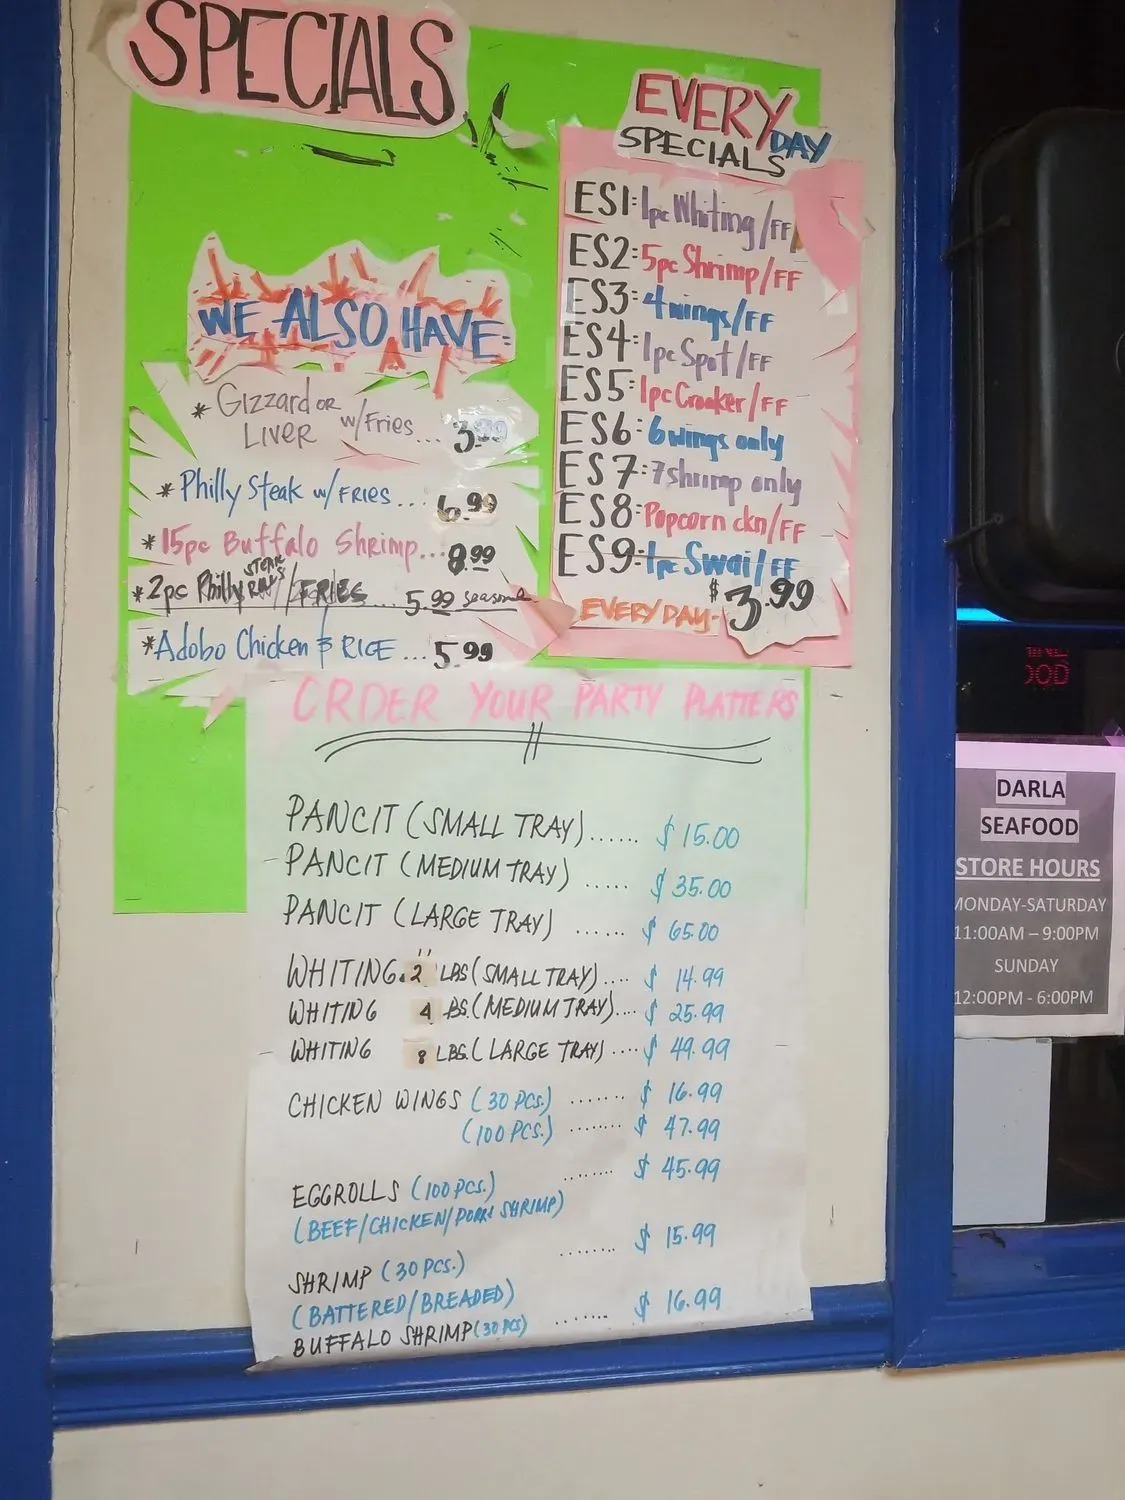 SPECIALS
EVERY DAY
SPECIALS
ES1: 1pc Whiting/FF
ES2: 5pc Shrimp/FF
ES3: 4wings/FF
ES4: 1pc Spot/FF
ES5: 1pc Croaker/FF
ES6: 6wings only
ES7: 7shrimp only
ES8: Popcorn ckn/FF
ES9: 1pc Swai/FF
EVERYDAY- $3.99
WE ALSO HAVE:
* Gizzard OR LIVER w/Fries... 3.99
* Philly Steak w/FRIES... 6.99
* 15pc Buffalo Shrimp... 8.99
* 2pc Philly STEAK /FRIES... 5.99
* Adobo Chicken & RICE... 5.99
ORDER YOUR PARTY PLATTERS
PANCIT (SMALL TRAY)...... $ 15.00
PANCIT (MEDIUM TRAY) ..... $ 35.00
PANCIT (LARGE TRAY) ...... $ 65.00
WHITING 2 LBS (SMALL TRAY).... $ 14.99
WHITING 4 BS. (MEDIUM TRAY).... $ 25.99
WHITING 8 LBS. (LARGE TRAY) .... $ 49.99
CHICKEN WINGS (30 PCS.) ....... $ 16.99
(100 PCS.) ........ $ 47.99
EGGROLLS (100 PCS.) ........ $ 45.99
(BEEF/CHICKEN/PORK SHRIMP)
SHRIMP (30 PCS.) ........ $ 15.99
(BATTERED/BREADED)
BUFFALO SHRIMP (30 PCS) ....... $ 16.99
DARLA
SEAFOOD
STORE HOURS
MONDAY-SATURDAY
11:00AM – 9:00PM
SUNDAY
12:00PM - 6:00PM